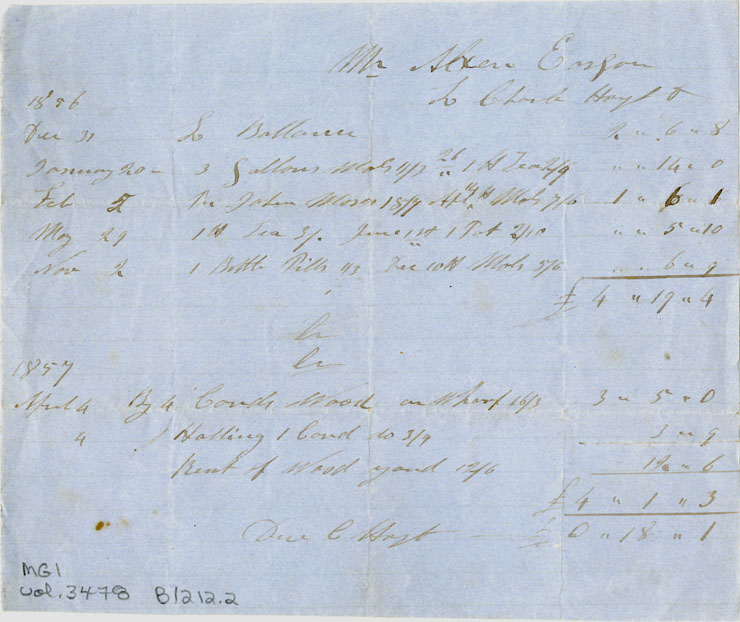 Mr Alxen Easson
To Charls Hoyt Dr
1856
Dec 31 To Ballance 2 " 6 " 8
January 20 - 3 Gallons Mols 11/3 26 " 1 lt Tea 2/9 " " 14 " 0
Feb 2 Per John Moser 18/7 Apl 14 Mols 7/6 1 " 6 " 1
May 29 1 lt Tea 3/. June 1st 1 Pot 2/10 " " 5 " 10
Nov 2 1 Bottle Pills 1/3 Dec 10th Mols 5/6 " " 6 " 9
£ 4 " 19 " 4
Cr
Cr
1857
April 4 By 4 Cords Wood on Wharf 16/3 3 " 5 " 0
4 Halling 1 Cord do 3/9 3 " 9
Rent of Wood yard 12/6 12 " 6
£ 4 " 1 " 3
Due C Hoyt £ 0 " 18 " 1
MG1
vol. 3478 B1212.2